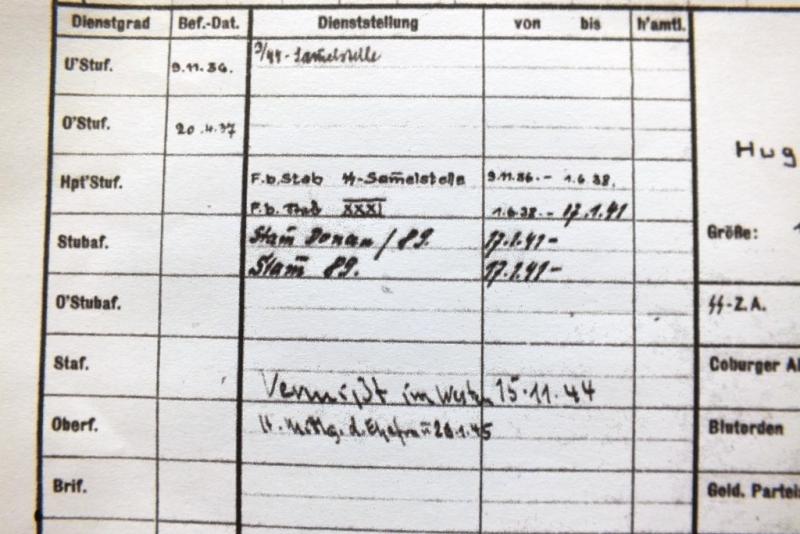 Dienstgrad Bef.-Dat. Dienststellung von bis h'amtl.
U'Stuf. 9.11.36. ᛋᛋ-Sam̅elstelle
O'Stuf. 20.4.37
Hpt'Stuf. F.b.Stab ᛋᛋ-Sam̅elstelle 9.11.36.- 1.6.38.
F.b. Stab XXXI 1.6.38.- 17.1.41
Hug
Stubaf. Stam̅ Donau / 89. 17.1.41-
Größe:
Stam̅ 89. 17.1.41-
O'Stubaf. ᛋᛋ-Z.A.
Staf. Coburger A
Vermißt im Westen 15.11.44
Oberf. lt. Mittlg. d. Ehefrau 28.1.45 Blutorden
Brif. Gold. Partei